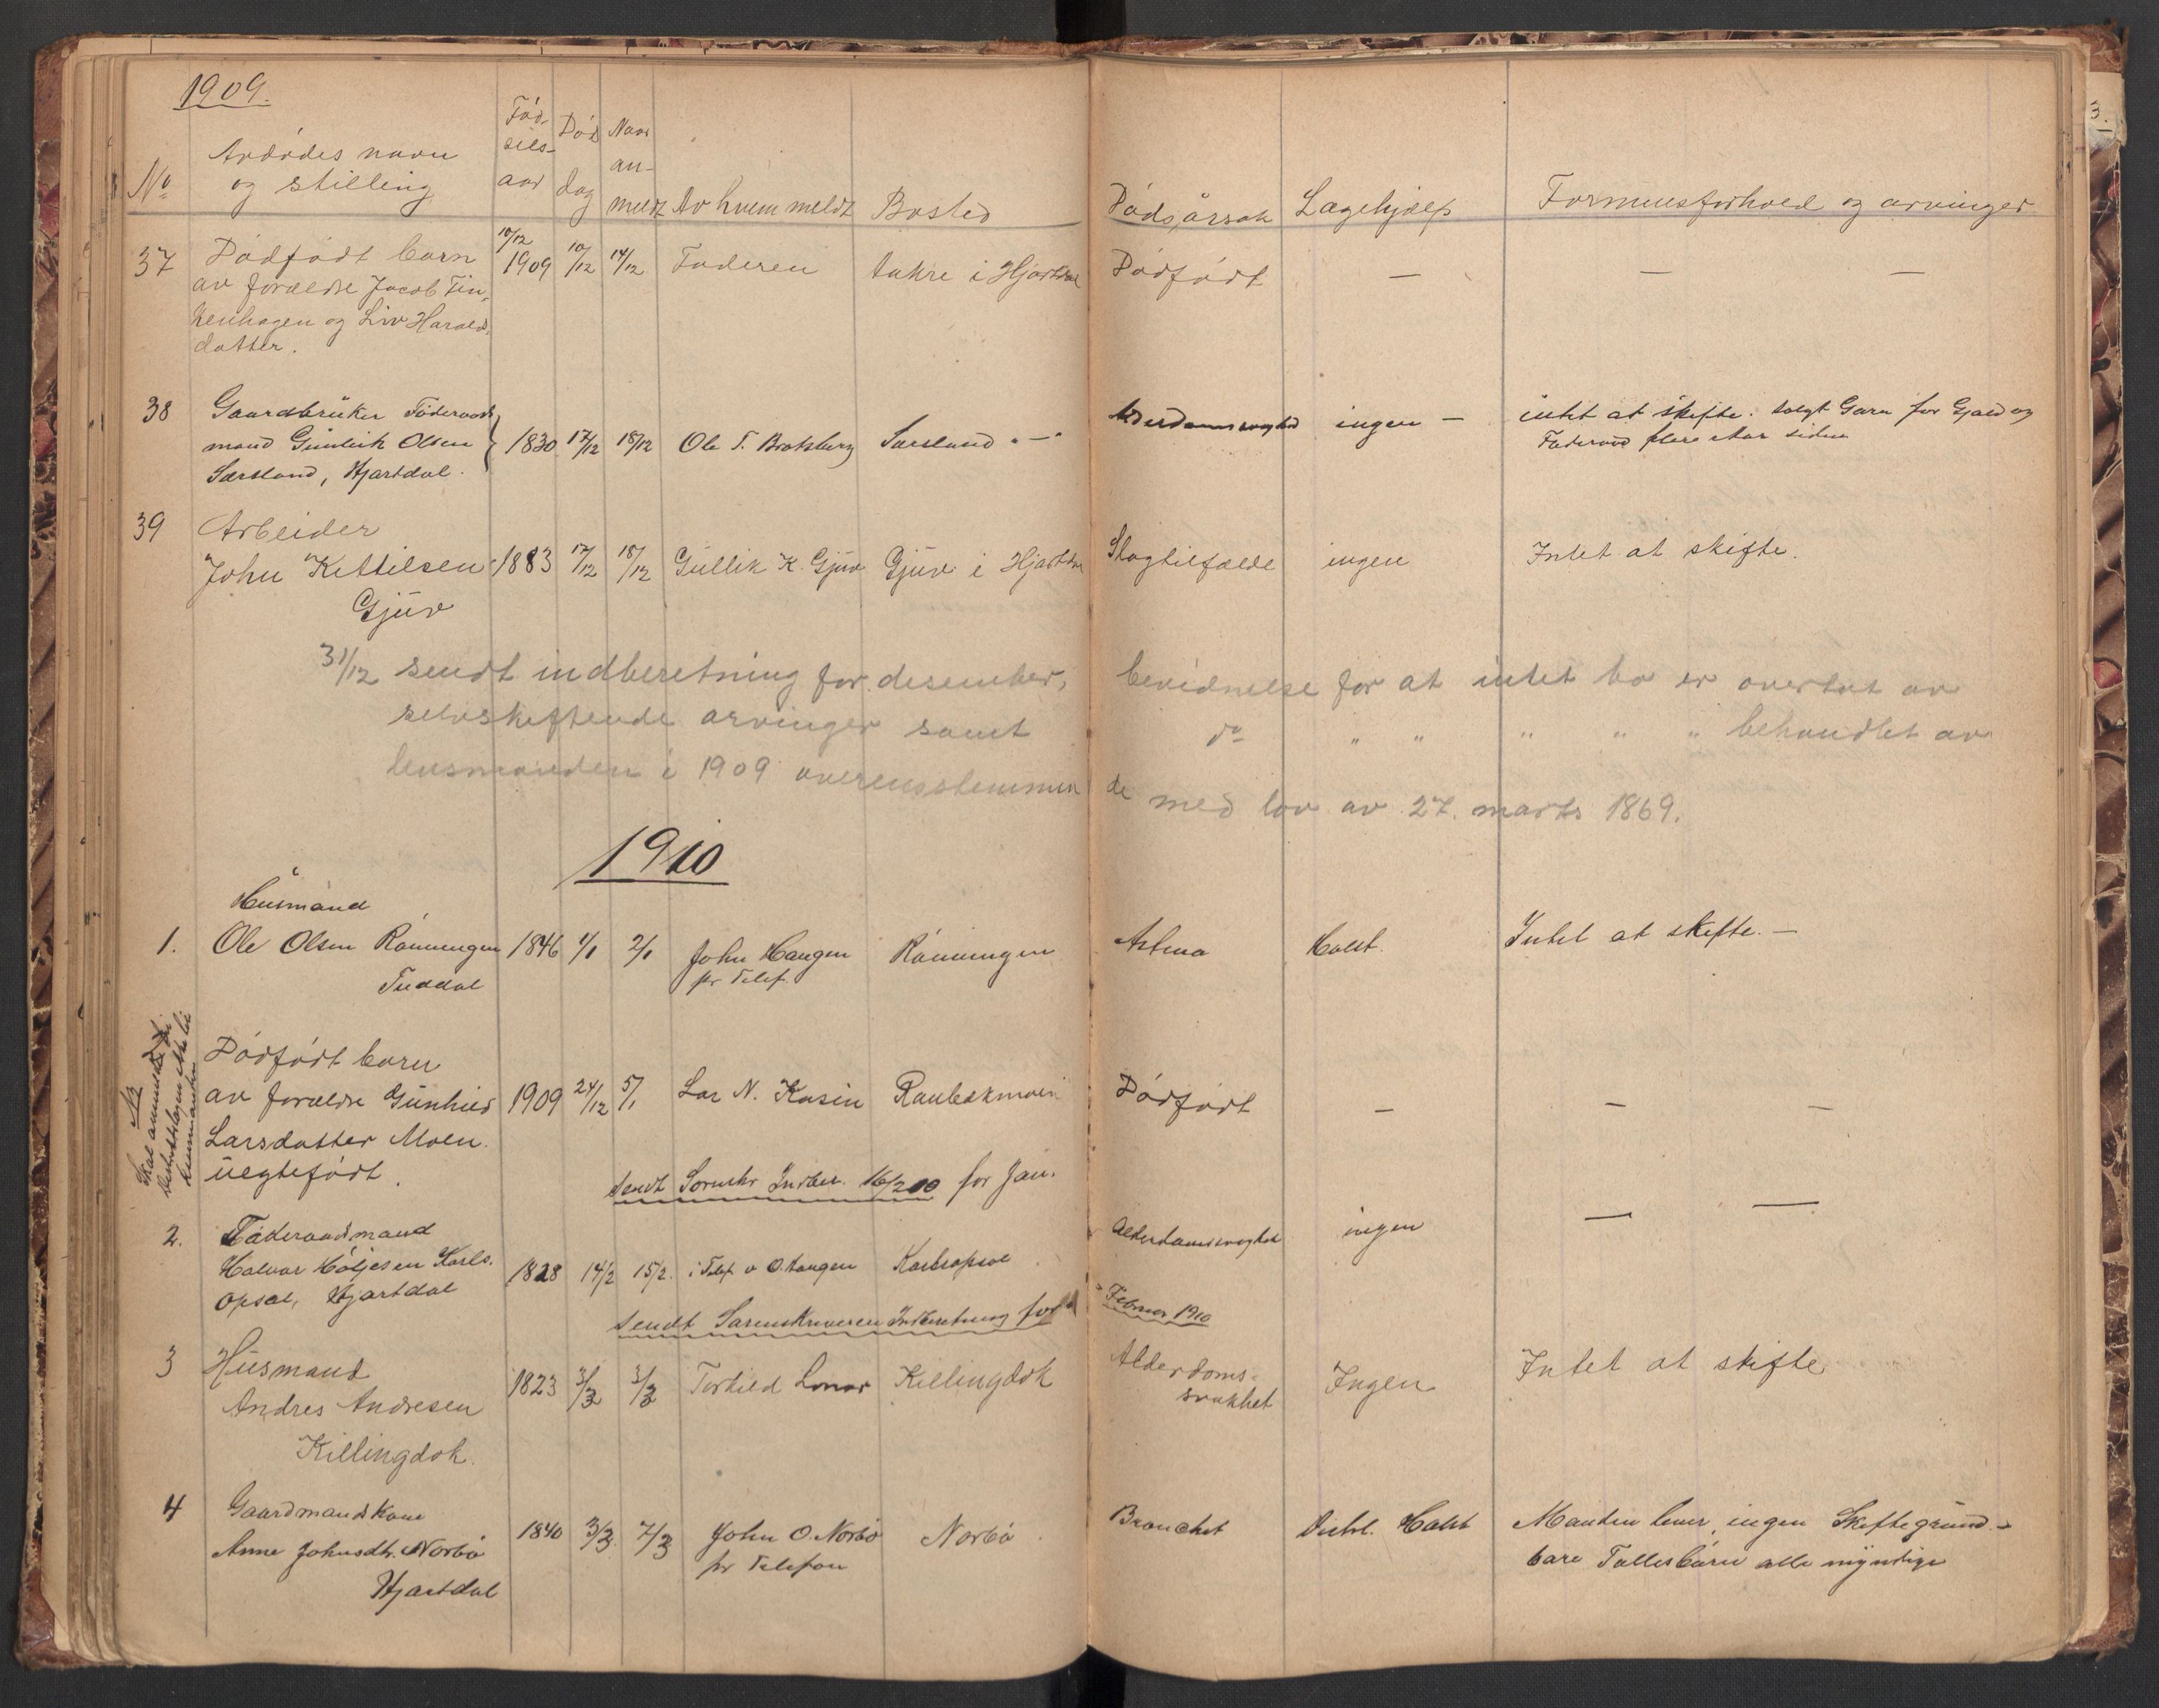 1909.
No
Avdødes navn
og stilling
Fød-
sels-
aar
Død
dag
Naar
an-
meldt
Av hvem meldt
Bosted
Dødsårsak
Lægehjælp
Formuesforhold og arvinger
37
Dødfødt barn
av forældre Jacob Fin-
kenhagen og Liv Harolds-
datter.
10/12
1909
10/12
14/12
Faderen
Aakre i Hjartdal
Dødfødt
—
—
—
38
Gaardbruker Föderaads
mand Gunleik Olsen
Særsland, Hjartdal.
1830
17/12
18/12
Ole T. Bratsberg
Særsland " — "
Alderdomssvaghed
ingen —
intet at skifte. Solgt Garn for Gjæld og
Föderaad flere Aar siden
39
Arbeider
John Kittilsen
Gjuv
1883
17/12
18/12
Gullik K. Gjuv
Gjuv i Hjartdal
Slagtilfælde
ingen
Intet at skifte.
31/12 sendt indberetning for desember, bevidnelse for at intet bo er overtat av
selvskiftende arvinger samt do " " " " " behandlet av
lensmanden i 1909 overensstemmen de med lov av 27. marts 1869.
1910
1.
Husmand
Ole Olsen Rønningen
Tuddal
1846
1/1
2/1
John Haugen
pr Telef.
Rønningen
Astma
Holst.
Intet at skifte. —
Skal anmeldes
lensmanden
Dødfødt barn
av forældre Gunhild
Larsdatter Moen.
uegtefødt.
1909
24/12
5/1
Lar N. Kasin
Raubekmoen
Dødfødt
—
—
—
Sendt Sorenskr Indber. 16/2 10 for Jan.
2.
Föderaadsmand
Halvor Høljesen Karls-
opsal, Hjartdal
1828
14/2
15/2.
i Telef. v O. Haugen
Karlsopsal
Alderdomssvaghed
ingen
—
—
Sendt Sorenskriveren Indberetning for Februar 1910
3
Husmand
Andres Andresen
Killingdok.
1823
3/3
3/3
Torkild Lonar
Killingdok
Alderdoms-
svakhet
Ingen
Intet at skifte
4
Gaardmandskone
Anne Johnsdtr. Norbø
Hjartdal
1840
3/3.
7/3
John O. Norbø
pr Telefon
Norbø
Bronchit
Distrl. Holst
Manden lever, ingen Skiftegrund. -
bare Fællesbørn alle myndige
3.